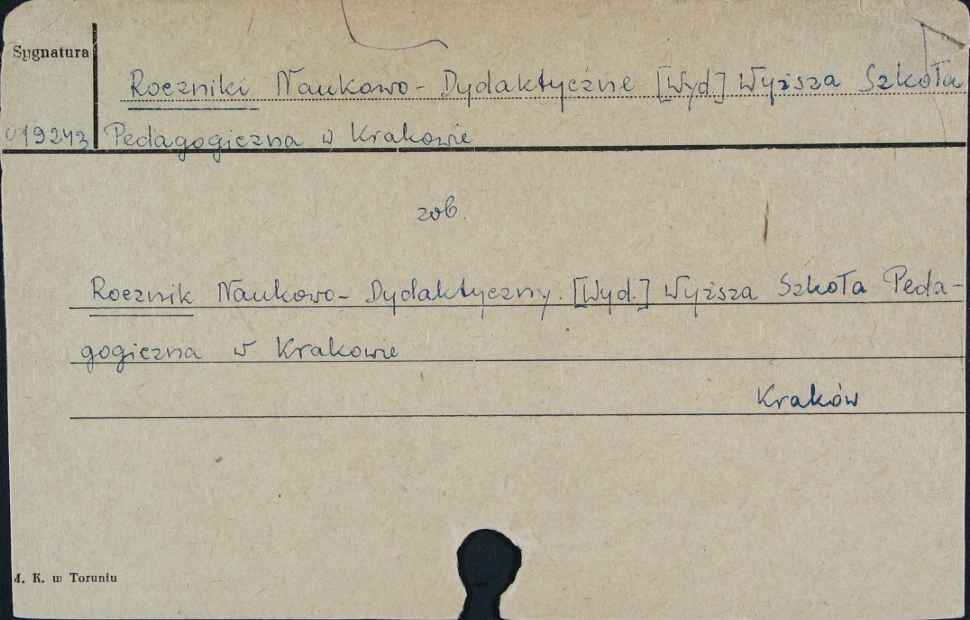 Sygnatura
Roczniki Naukowo-Dydaktyczne [Wyd.] Wyższa Szkoła
019243 Pedagogiczna w Krakowie
zob.
Rocznik Naukowo-Dydaktyczny. [Wyd.] Wyższa Szkoła Peda-
gogiczna w Krakowie
Kraków
M. K. w Toruniu